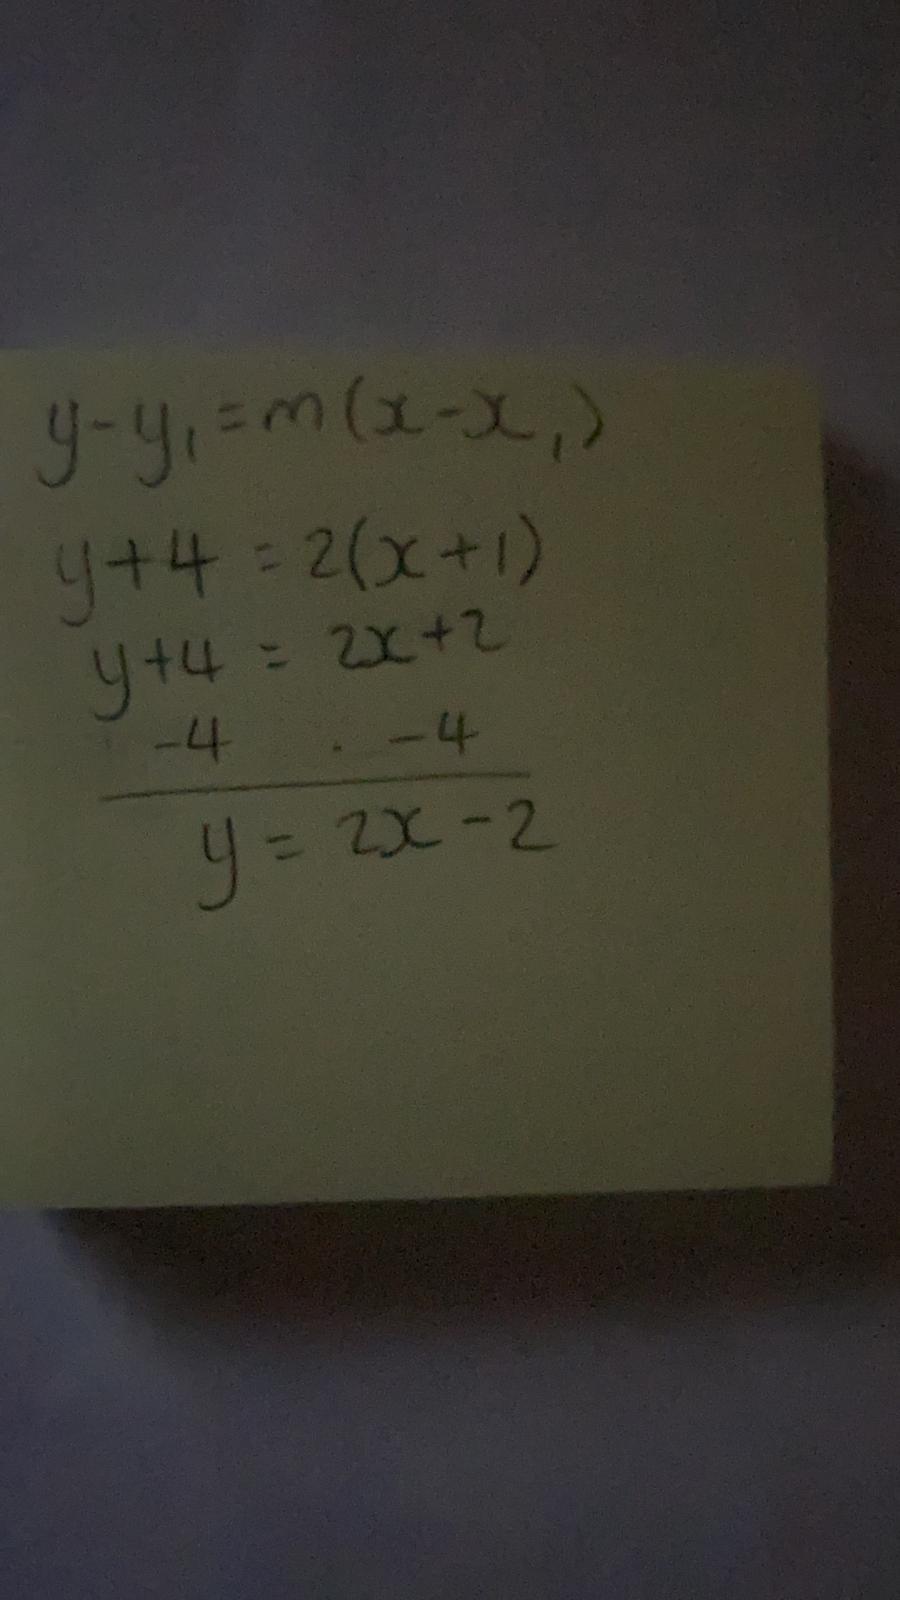 y-y₁=m(x-x₁)
y+4 = 2(x+1)
y+4 = 2x+2
-4 . -4
y = 2x-2